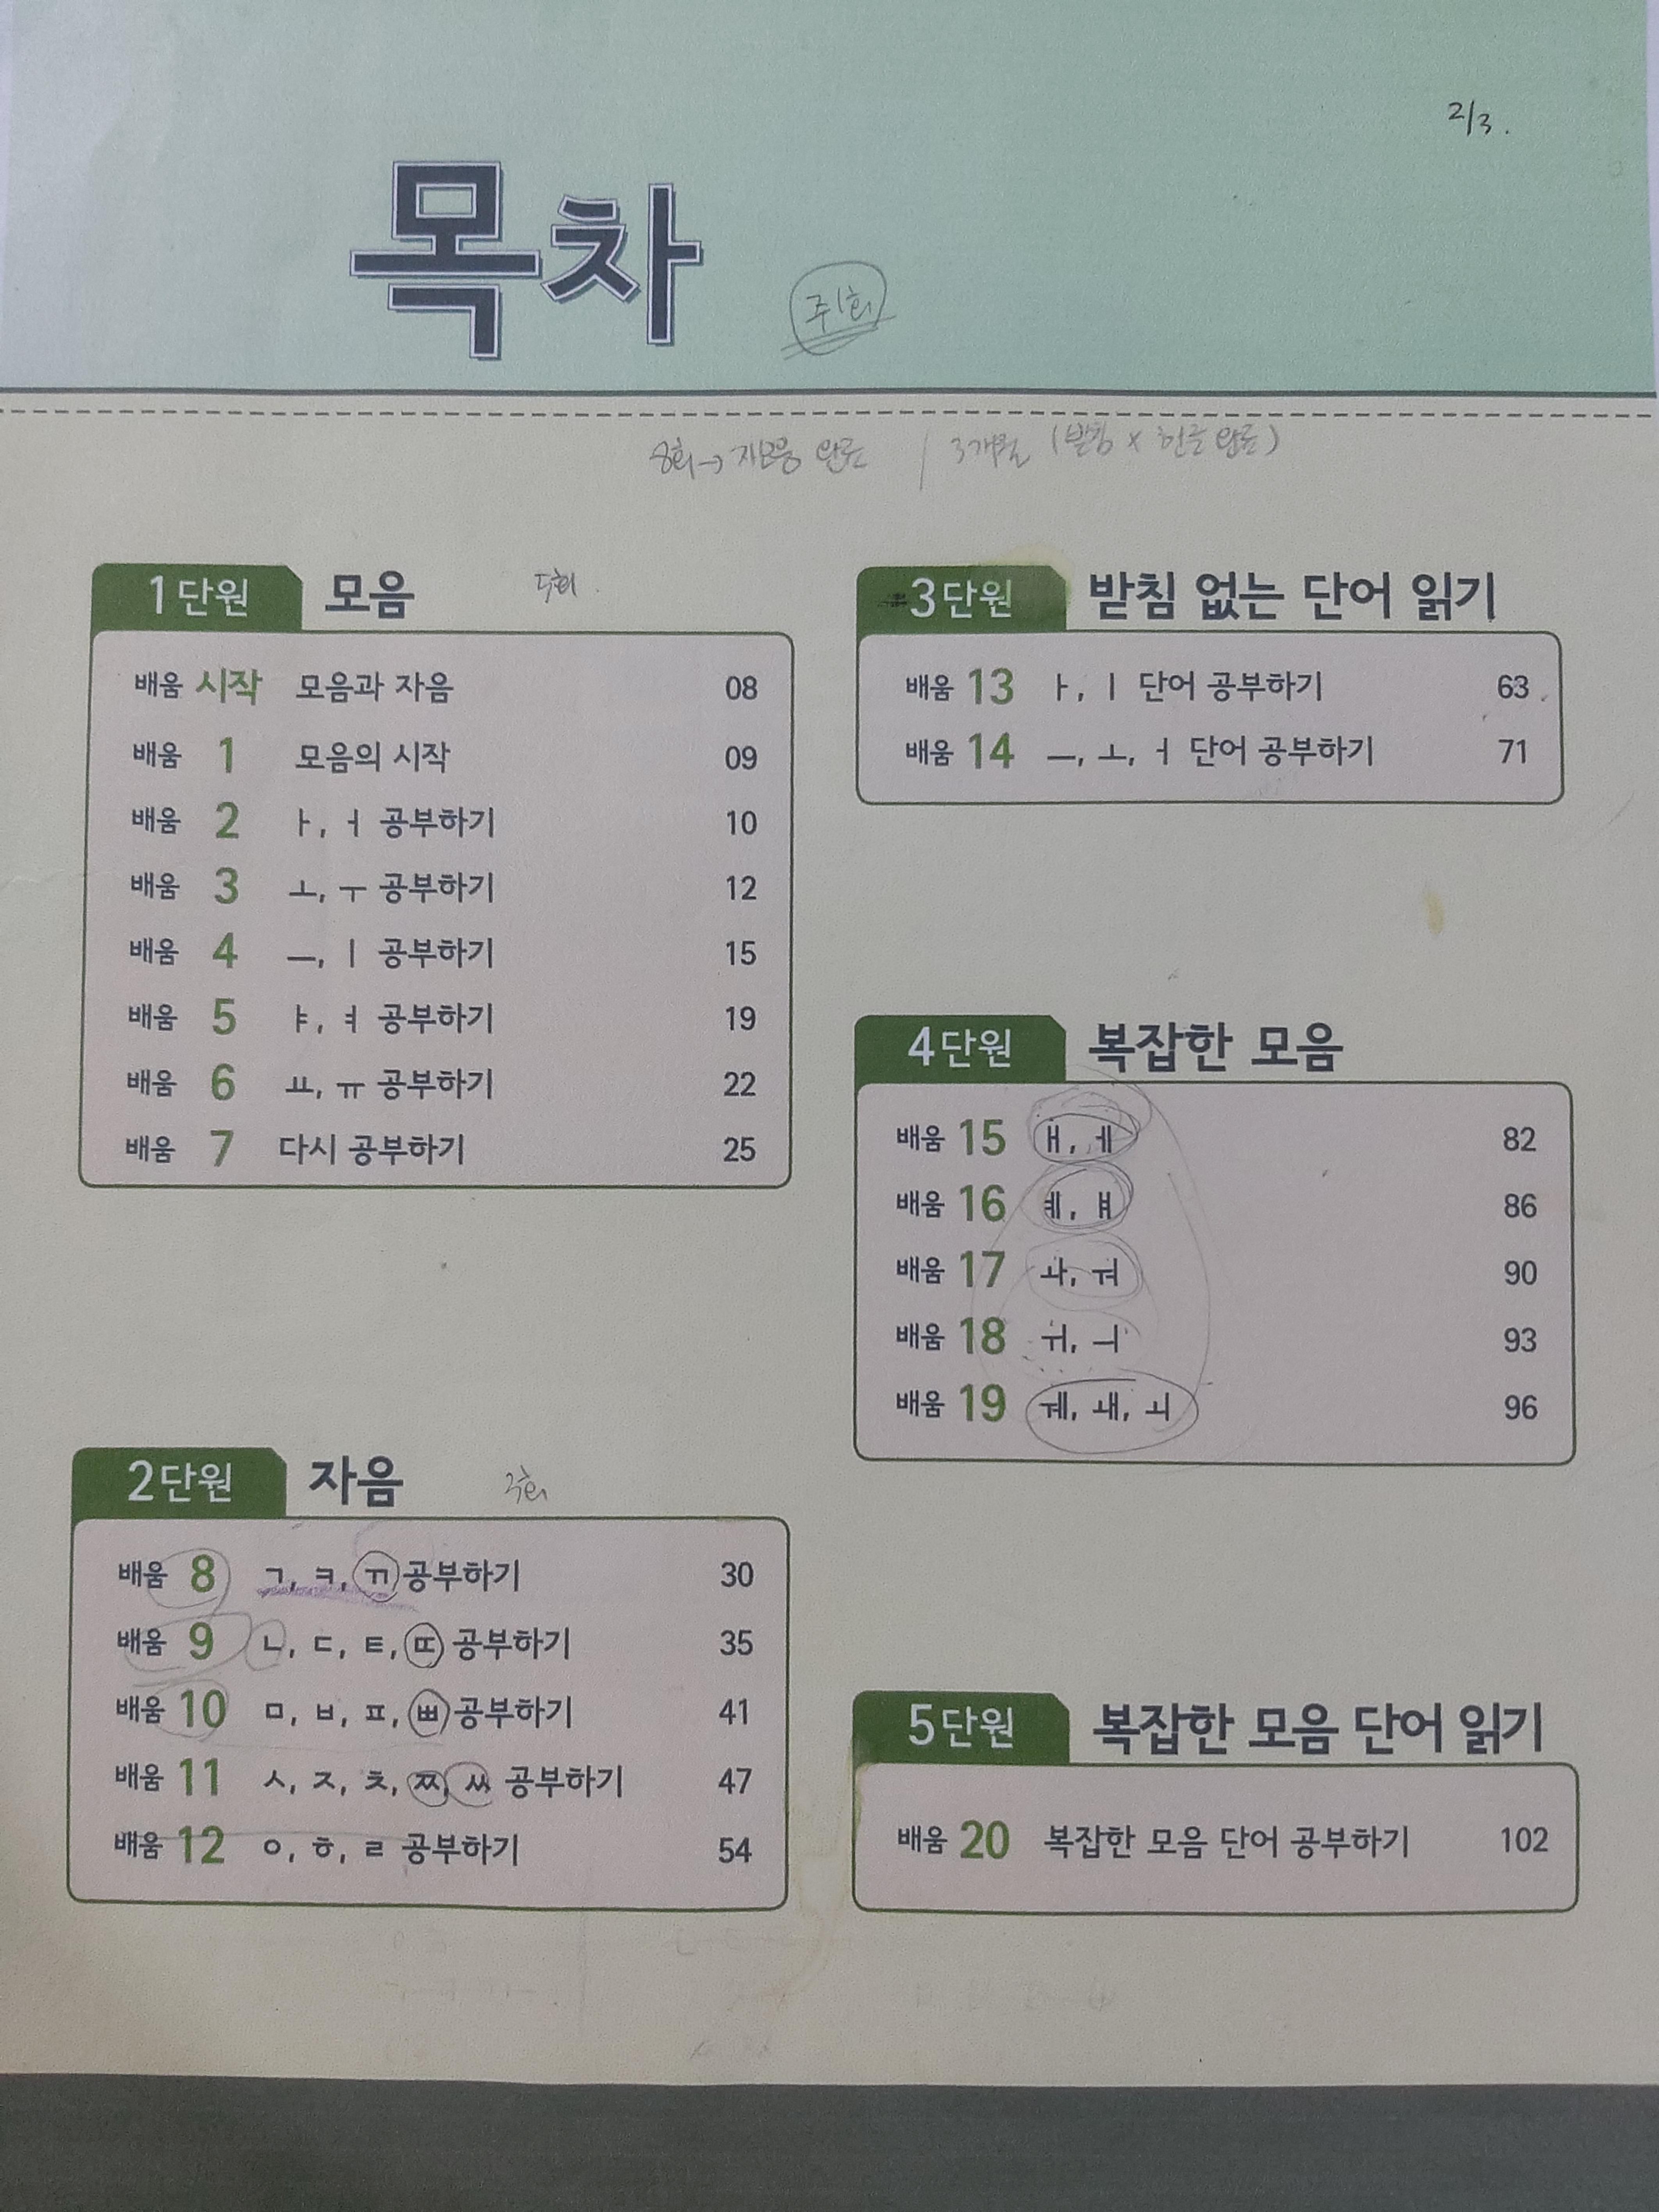 2/3.
목차
주1회
8회→ 자모음 완료 / 3개월 (받침 x 한글 완료)
1단원 모음 5회.
배움 시작 모음과 자음 08
배움 1 모음의 시작 09
배움 2 ㅏ, ㅓ 공부하기 10
배움 3 ㅗ, ㅜ 공부하기 12
배움 4 ㅡ, ㅣ 공부하기 15
배움 5 ㅑ, ㅕ 공부하기 19
배움 6 ㅛ, ㅠ 공부하기 22
배움 7 다시 공부하기 25
2단원 자음 3회
배움 8 ㄱ, ㅋ, ㄲ 공부하기 30
배움 9 ㄴ, ㄷ, ㅌ, ㄸ 공부하기 35
배움 10 ㅁ, ㅂ, ㅍ, ㅃ 공부하기 41
배움 11 ㅅ, ㅈ, ㅊ, ㅉ, ㅆ 공부하기 47
배움 12 ㅇ, ㅎ, ㄹ 공부하기 54
3단원 받침 없는 단어 읽기
배움 13 ㅏ, ㅣ 단어 공부하기 63
배움 14 ㅡ, ㅗ, ㅓ 단어 공부하기 71
4단원 복잡한 모음
배움 15 ㅐ, ㅔ 82
배움 16 ㅖ, ㅒ 86
배움 17 ㅘ, ㅝ 90
배움 18 ㅟ, ㅢ 93
배움 19 ㅞ, ㅙ, ㅚ 96
5단원 복잡한 모음 단어 읽기
배움 20 복잡한 모음 단어 공부하기 102